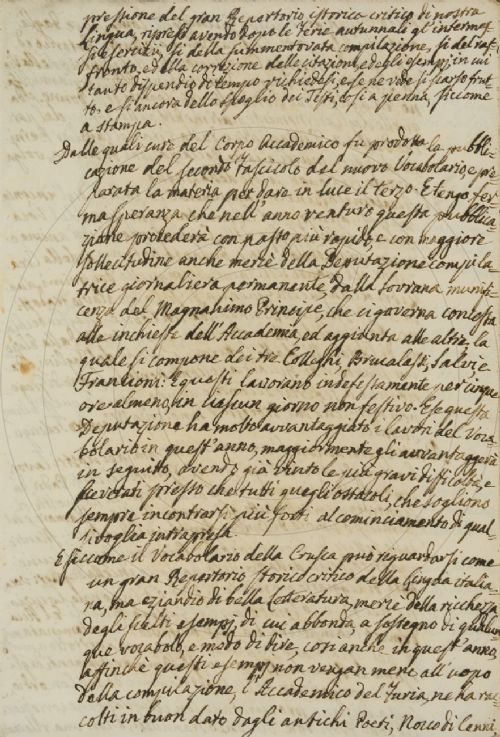 pressione del gran Repertorio istorico critico di nostra
lingua, ripreso avendo dopo le Ferie autunnali gl'intermes-
si esercizi, sì della summentovata compilazione, sì del raf-
fronto, ed alla correzione delle citazioni, ed egli esempj, in cui
tanto dispendio di tempo richiedesi, e se ne vide sì scarso frut-
to, e sì ancora dello spoglio dei Testi, così a penna, siccome
a stampa.
Dalle quali cure del Corpo Accademico fu prodotta la pubbli-
cazione del secondo Fascicolo del nuovo Vocabolario, e pre-
parata la materia per dare in luce il terzo. E tengo fer-
ma speranza che nell'anno venturo questa pubblica-
zione procederà con passo più rapido, e con maggiore
sollecitudine anche mercè della Deputazione compila-
trice giornaliera permanente, dalla sovrana munifi-
cenza del Magnanimo Principe, che ci governa contesta
alle inchieste dell'Accademia, ed aggiunta alle altre, la
quale si compone dei tre Colleghi Brucalassi, Salvi, e
Francioni: E questi lavorano indefessamente per cinque
ore almeno, in ciascun giorno non festivo. E se questa
Deputazione ha molto avvantaggiato i lavori del Voca-
bolario in quest'anno, maggiormente gli avvantaggerà
in seguito, avendo già vinto le più gravi difficoltà, e
scevrati presso che tutti quegli ostacoli, che sogliono
sempre incontrarsi più forti al cominciamento di qual-
sivoglia intrapresa.
E siccome il Vocabolario della Crusca può riguardarsi come
un gran Repertorio storico critico della lingua italia-
na, ma eziandio di bella Letteratura, mercè della ricchezza
degli scelti esempj, di cui abbonda, a sostegno di qualun-
que vocabolo, e modo di dire, così anche in quest'anno,
affinchè questi esempj non vengan meno all'uopo
della compilazione, l'Accademico del Furia, ne ha rac-
colti in buon dato dagli antichi Poeti, Nocco di Cenni,